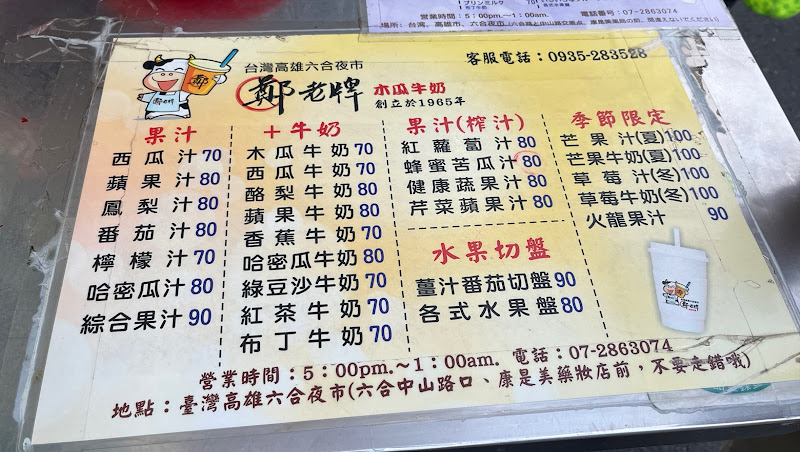 プリンミルク
布丁牛奶
70
營業時間：5：00pm.～1：00am.
電話番号：07-2863074
台灣高雄六合夜市
鄭老牌 木瓜牛奶
創立於1965年
客服電話：0935-283528
鄭
果汁
西瓜汁 70
蘋果汁 80
鳳梨汁 80
番茄汁 80
檸檬汁 70
哈密瓜汁 80
綜合果汁 90
＋牛奶
木瓜牛奶 70
西瓜牛奶 70
酪梨牛奶 80
蘋果牛奶 80
香蕉牛奶 70
哈密瓜牛奶 80
綠豆沙牛奶 70
紅茶牛奶 70
布丁牛奶 70
果汁(榨汁)
紅蘿蔔汁 80
蜂蜜苦瓜汁 80
健康蔬果汁 80
芹菜蘋果汁 80
水果切盤
薑汁番茄切盤 90
各式水果盤 80
季節限定
芒果汁(夏) 100
芒果牛奶(夏) 100
草莓汁(冬) 100
草莓牛奶(冬) 100
火龍果汁 90
營業時間：5：00pm.～1：00am. 電話：07-2863074
地點：臺灣高雄六合夜市(六合中山路口、康是美藥妝店前，不要走錯哦)